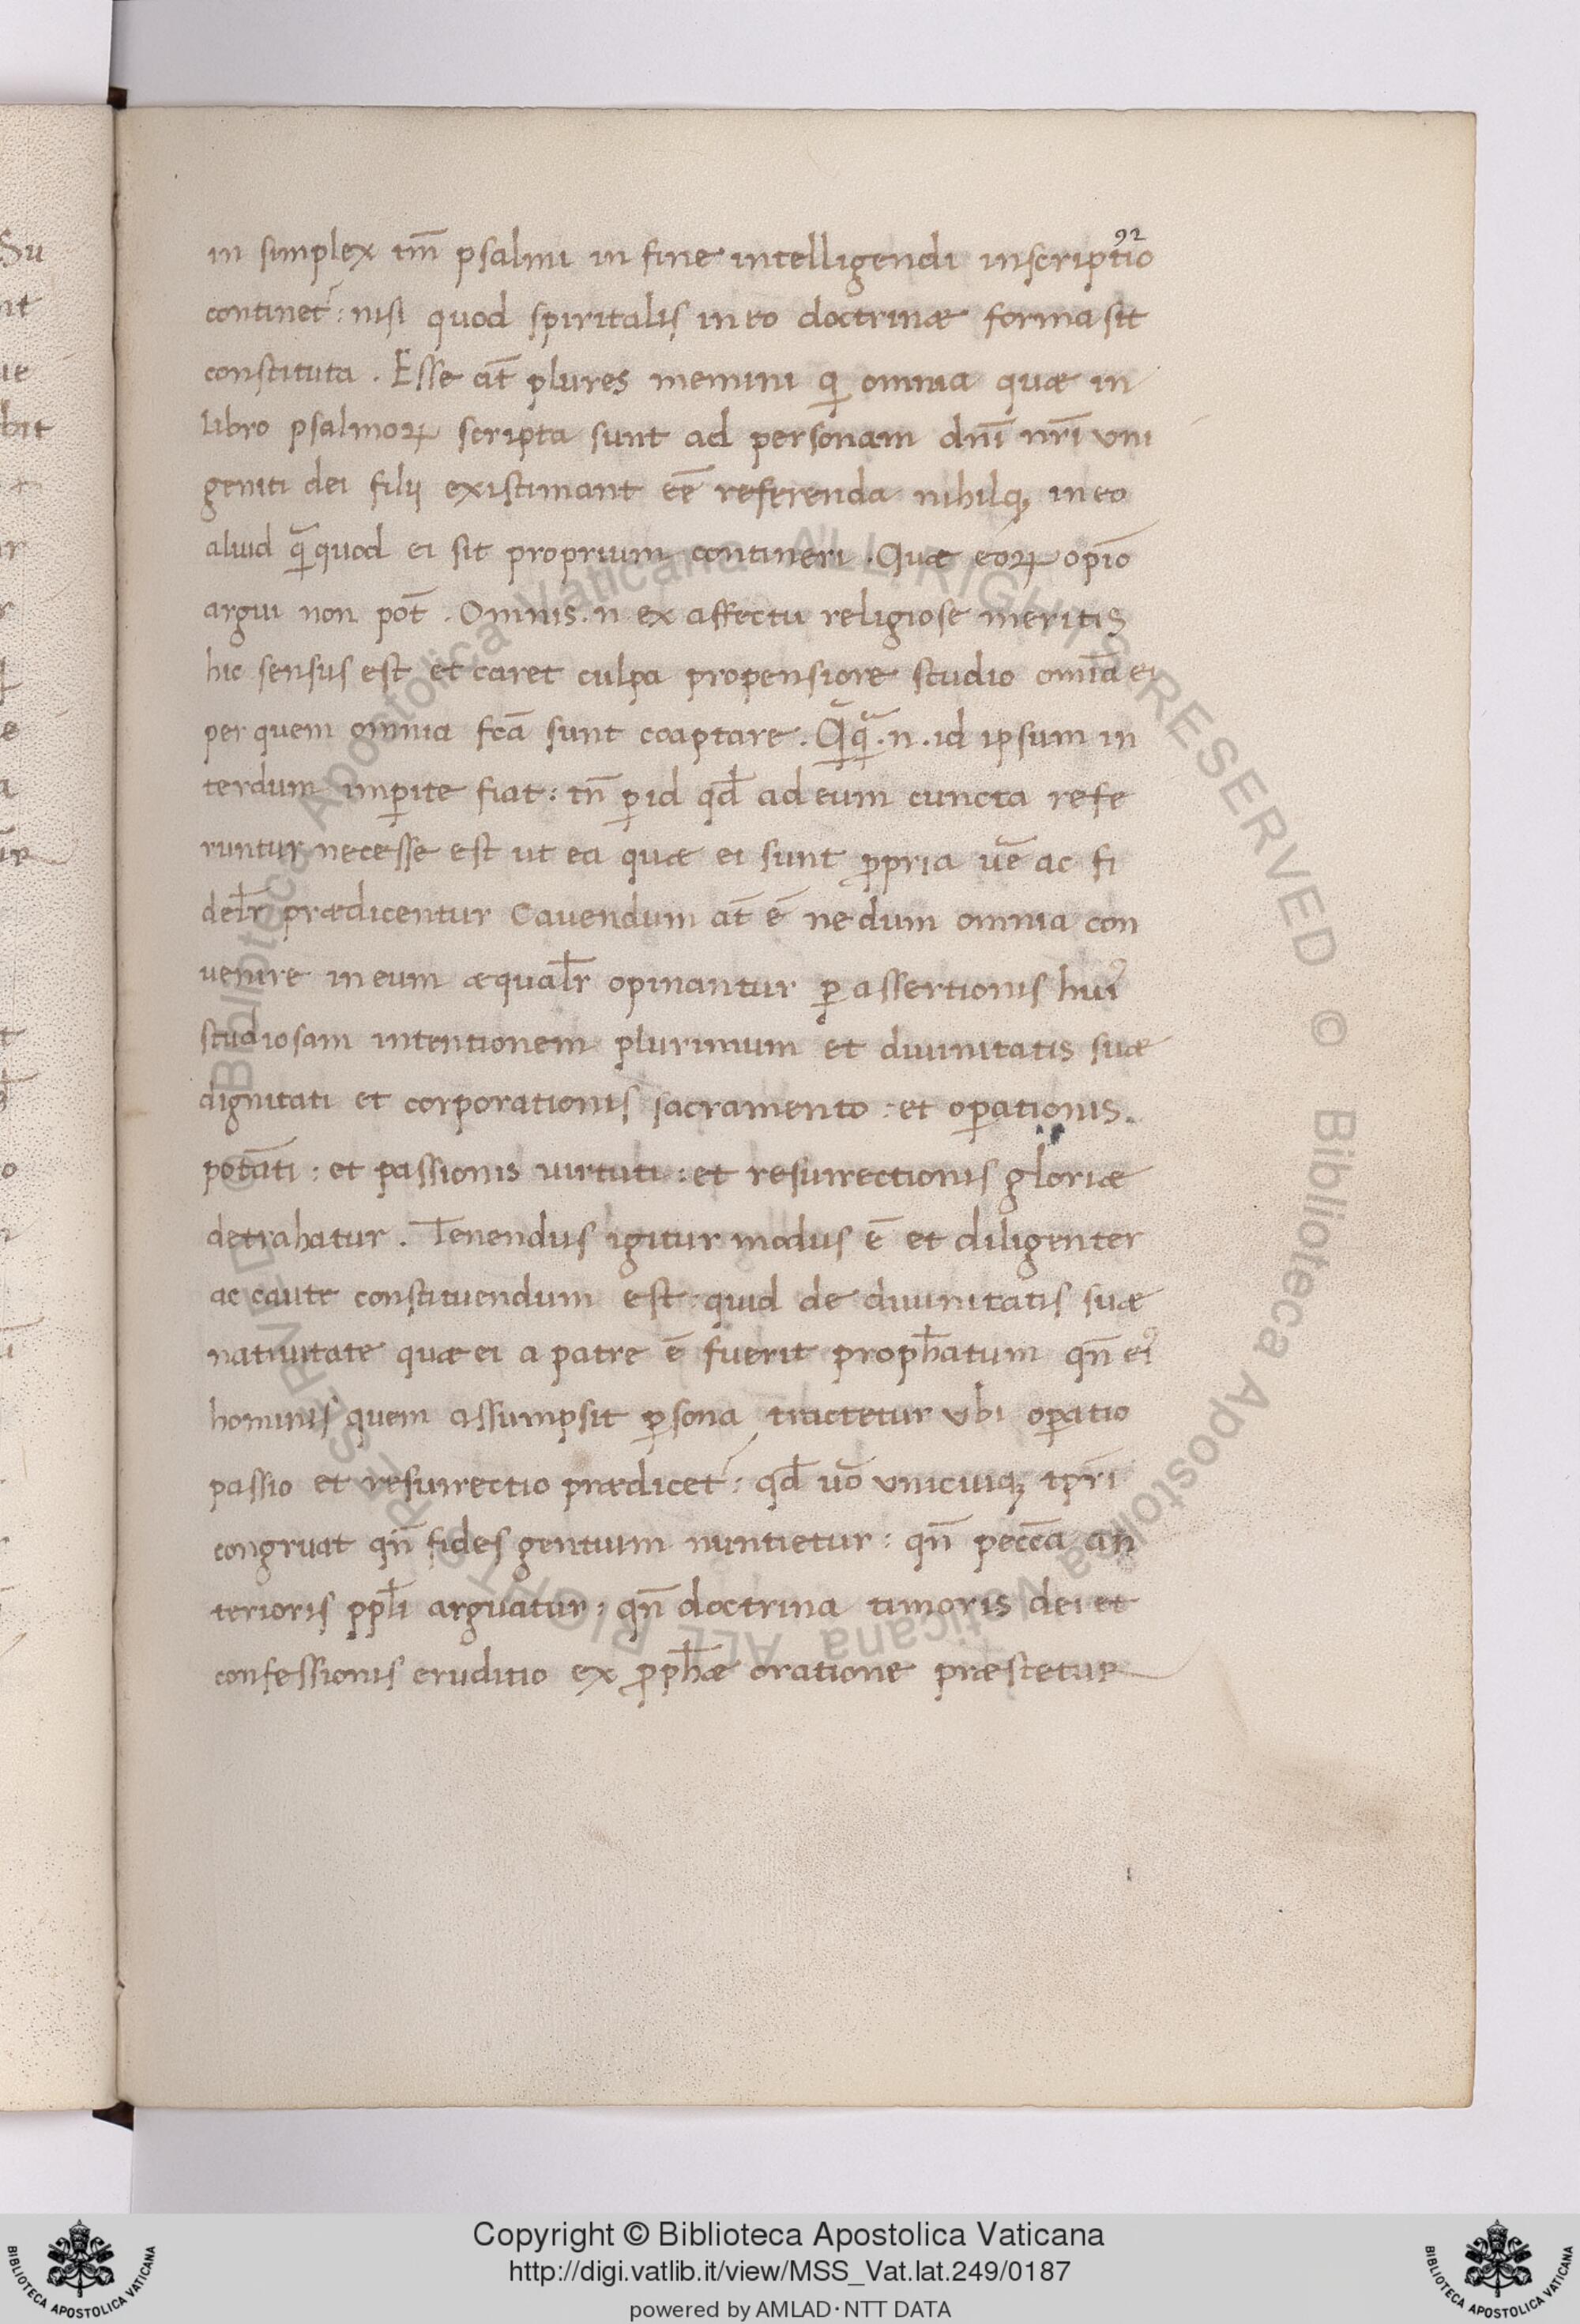 92
in simplex tm̄ psalmi in fine intelligendi inscriptio
continet᷑: nisi quod spiritalis in eo doctrinæ forma sit
constituta. Esse at̄ plures memini q̣ omnia quæ in
libro psalmoꝝ scripta sunt ad personam dnī nrī vni
geniti dei filij existimant eē referenda nihilq; in eo
aliud q̃quod ei sit proprium contineri. Quæ eoꝝ opīo
argui non pōt. Omnis.n ex affectu religiose meritis
hic sensus est et caret culpa propensiore studio omīa ei
per quem omnia fcā sunt coaptare. Q̃q̃.n.id ipsum in
terdum imꝑite fiat: tn̄ ꝑ id qd̄ ad eum cuncta refe
runtur necesse est ut ea quæ ei sunt ꝓpria ūe ac fi
delr̄ prædicentur Cavendum at̄ ē ne dum omnia con
venire in eum æqualr̄ opinantur ꝑ assertionis huiꝰ
studiosam intentionem plurimum et divinitatis suæ
dignitati et corporationis sacramento: et oꝑationis.
potāti: et passionis virtuti: et resurrectionis gloriæ
detrahatur. Tenendus igitur modus ē et diligenter
ac caute constituendum est: quid de divinitatis suæ
nativitate quæ ei a patre ē fuerit proph̄atum qn̄ eiꝰ
hominis quem assumpsit ꝑsona tractetur vbi oꝑatio
passio et resurrectio prædicet᷑: qd̄ uō vnicuiq; tpr̄i
congruat qn̄ fides gentium nuntietur: qn̄ peccā an
terioris ppl̄i arguatur: qn̄ doctrina timoris dei et
confessionis eruditio ex ꝓph̄æ oratione præstetur
Copyright © Biblioteca Apostolica Vaticana
http://digi.vatlib.it/view/MSS_Vat.lat.249/0187
powered by AMLAD·NTT DATA